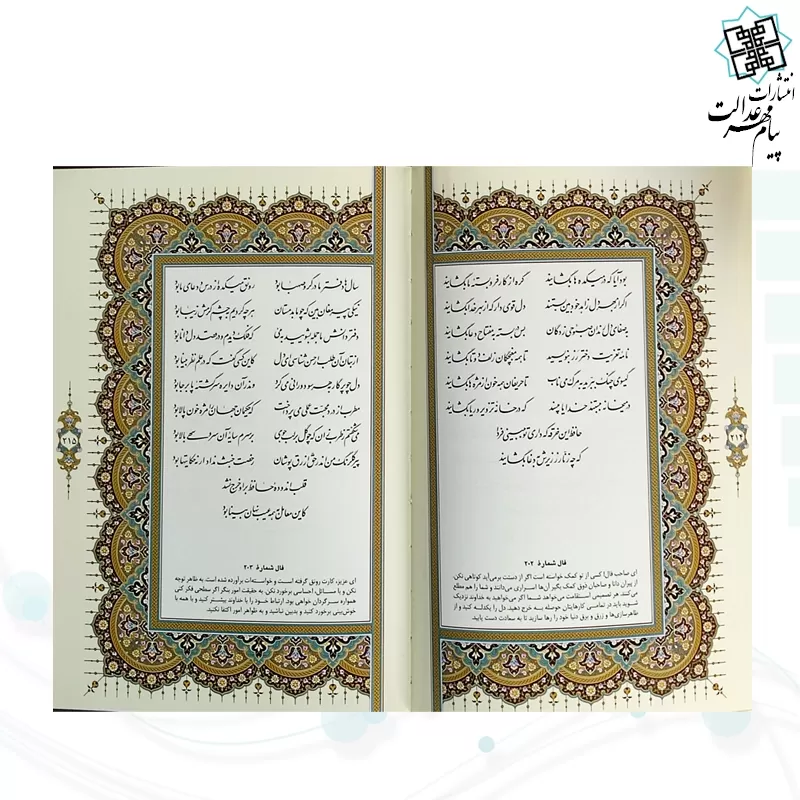 انتشارات
پیام مهر عدالت
۲۱۴
بود آیا که در میکده ها بگشایند گره از کار فروبسته ما بگشایند
اگر از بهر دل زاهد خودبین بستند دل قوی دار که از بهر خدا بگشایند
به صفای دل رندان صبوحی زدگان بس در بسته به مفتاح دعا بگشایند
نامه تعزیت دختر رز بنویسید تا همه مغبچگان زلف دوتا بگشایند
گیسوی چنگ ببرید به مرگ می ناب تا حریفان همه خون از مژه ها بگشایند
در میخانه ببستند خدایا مپسند که در خانه تزویر و ریا بگشایند
حافظ این خرقه که داری تو ببینی فردا
که چه زنار ز زیرش به دغا بگشایند
فال شمارهٔ ۲۰۲
ای صاحب فال! کسی از تو کمک خواسته است اگر از دستت برمی‌آید کوتاهی نکن.
از پیران دانا و صاحبان ذوق کمک بگیر آن‌ها اسراری می‌دانند و شما را هم مطلع
می‌کنند. هر تصمیمی استقامت می‌خواهد شما اگر می‌خواهید به خداوند نزدیک
شوید باید در تمامی کارهایتان حوصله به خرج دهید. دل را یکدله کنید و از
ظاهرسازی‌ها و زرق و برق دنیا خود را رها سازید تا به سعادت دست یابید.
۲۱۵
سال ها دفتر ما در گرو صهبا بود رونق میکده از درس و دعای ما بود
نیکی پیر مغان بین که چو ما بدمستان هر چه کردیم به چشم کرمش زیبا بود
دفتر دانش ما جمله بشویید به می که فلک دیدم و در قصد دل دانا بود
از بتان آن طلب ار حسن شناسی ای دل کاین کسی گفت که در علم نظر بینا بود
دل چو پرگار به هر سو دورانی می کرد و اندر آن دایره سرگشته پابرجا بود
مطرب از درد محبت عملی می پرداخت که حکیمان جهان را مژه خون پالا بود
می شکفتم ز طرب زان که چو گل بر لب جوی بر سرم سایه آن سرو سهی بالا بود
پیر گلرنگ من اندر حق ازرق پوشان رخصت خبث نداد ار نه حکایت ها بود
قلب اندوده حافظ بر او خرج نشد
کاین معامل به همه عیب نهان بینا بود
فال شمارهٔ ۲۰۳
ای عزیز، کارت رونق گرفته است و خواسته‌ات برآورده شده است. به ظاهر توجه
نکن و با مسائل، احساسی برخورد نکن. به حقیقت امور بنگر اگر سطحی فکر کنی
همواره سرگردان خواهی بود. ارتباط خود را با خداوند بیشتر کنید و با همه با
خوش‌بینی برخورد کنید و بدبین نباشید و به ظواهر امور اکتفا نکنید.